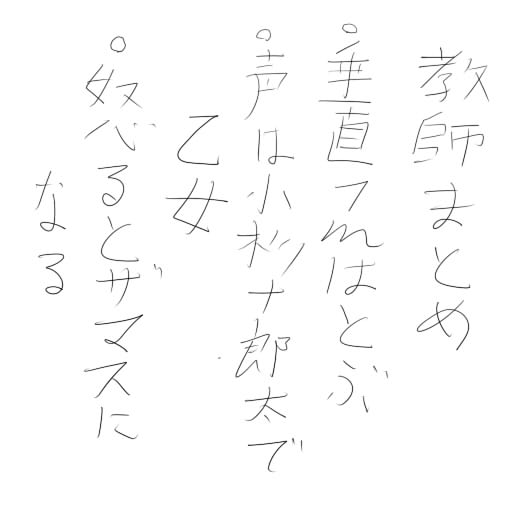 教師まとめ
○垂直フれはとぶ
○声は小杉十郎太で
乙女
○怒るとザマスに
なる